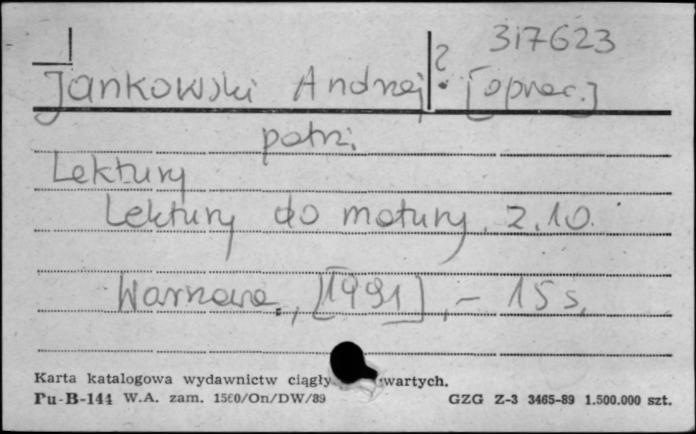 317623
Jankowski Andrzej ? [oprac.]
patrz:
Lektury
Lektury do matury, z. 10.
Warszawa, [1991], - 15 s.
Karta katalogowa wydawnictw ciągły wartych.
Pu-B-144 W.A. zam. 1560/On/DW/89 GZG Z-3 3465-89 1.500.000 szt.